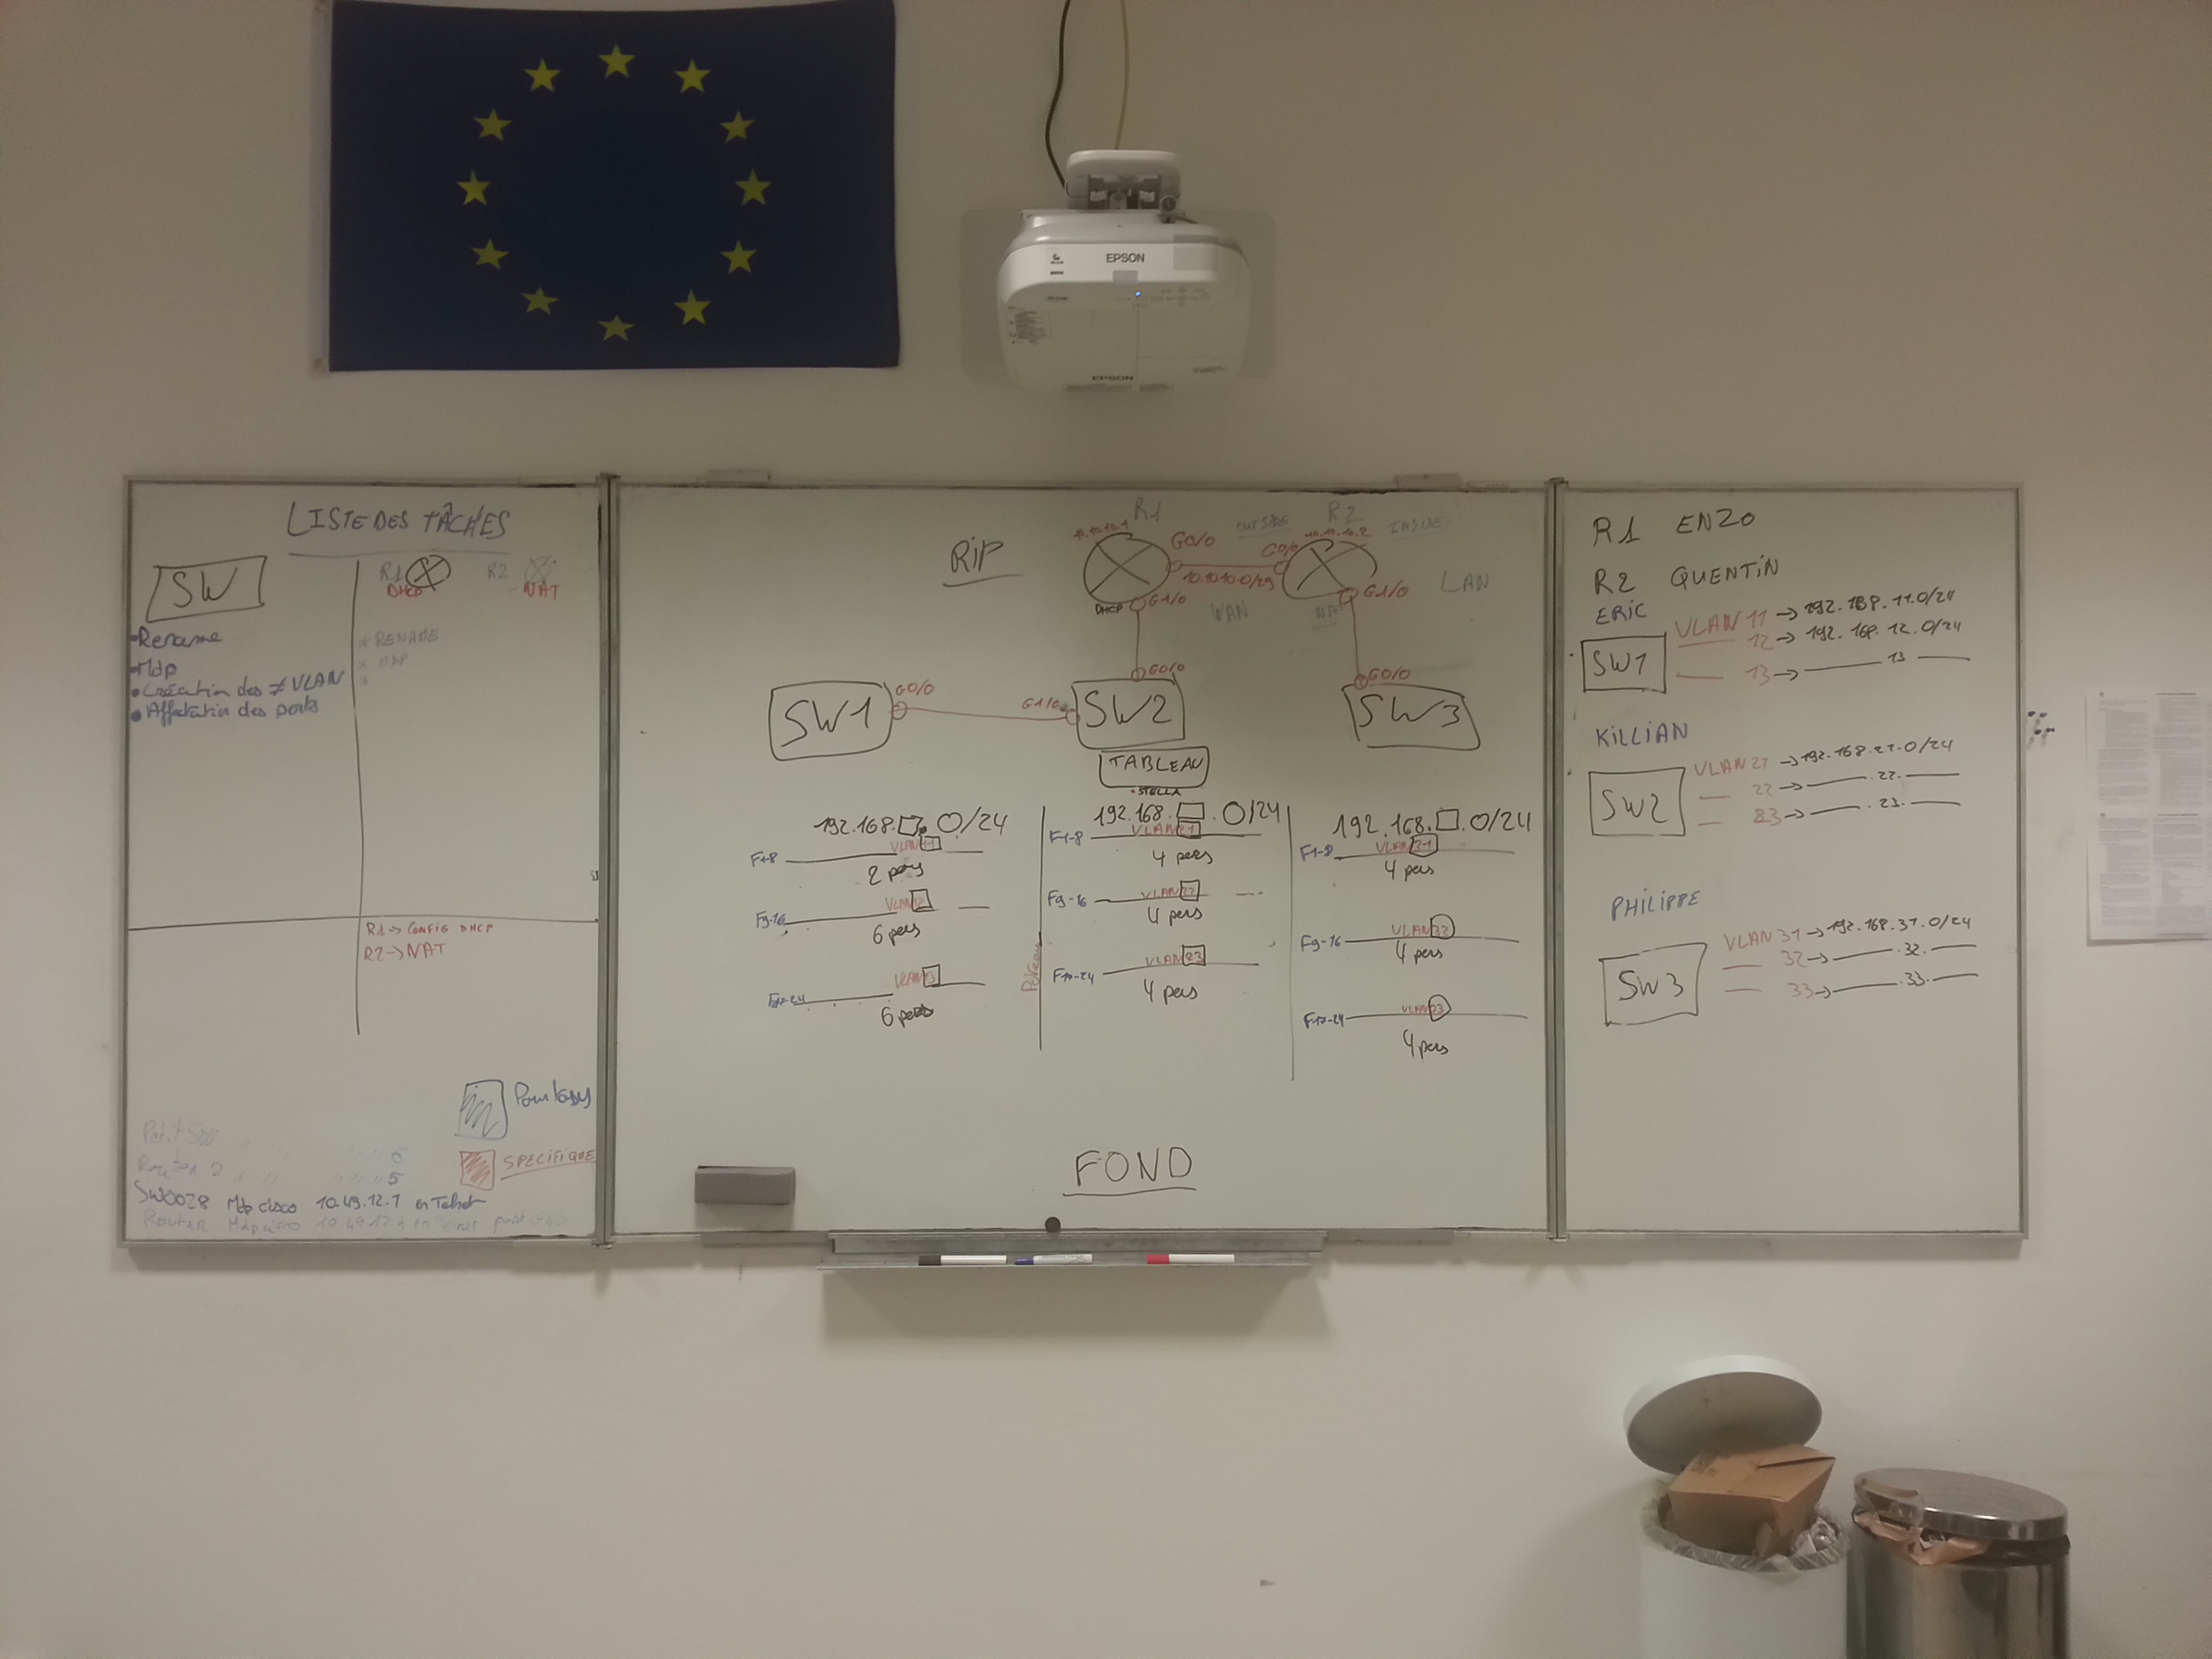 EPSON
EPSON
LISTE DES TÂCHES
SW
R1
R2
DHCP
-NAT
•Rename
•Mdp
•Création des ≠ VLAN
•Affectation des ports
RENAME
R1-> CONFIG DHCP
R2->NAT
SPECIFIQUE
Router 2
5
SW0028 Mdp cisco 10.49.12.1 en Telnet
Router Mdp cisco
RIP
R1
OUTSIDE
R2
INSIDE
G0/0
G0/0
10.10.10.2
10.10.10.0/29
DHCP
G1/0
WAN
NAT
G1/0
LAN
G0/0
G0/0
SW1
G0/0
G1/0
SW2
SW3
TABLEAU
•STELLA
192.168. .0/24
F1-8
VLAN11
2 pers
F9-16
VLAN12
6 pers
VLAN13
6 pers
192.168. .0/24
F1-8
VLAN21
4 pers
F9-16
VLAN22
4 pers
F17-24
VLAN23
4 pers
192.168. .0/24
F1-8
VLAN31
4 pers
F9-16
VLAN32
4 pers
F17-24
4 pers
FOND
R1 ENZO
R2 QUENTIN
ERIC
SW1
VLAN 11 -> 192.168.11.0/24
12 -> 192.168.12.0/24
13 -> 13
KILLIAN
SW2
VLAN 21 -> 192.168.21.0/24
22 -> .22.
23 -> .23.
PHILIPPE
SW3
VLAN 31 -> 192.168.31.0/24
32 -> .32.
33 -> .33.